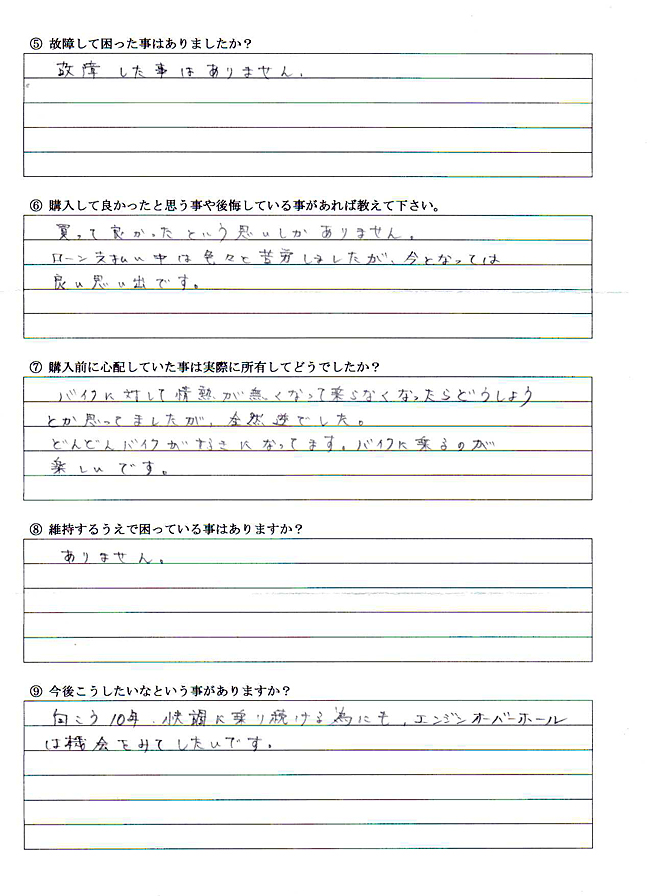 ⑤ 故障して困った事はありましたか？
故障した事はありません。
⑥ 購入して良かったと思う事や後悔している事があれば教えて下さい。
買って良かったという思いしかありません。
ローン支払い中は色々と苦労しましたが、今となっては
良い思い出です。
⑦ 購入前に心配していた事は実際に所有してどうでしたか？
バイクに対して情熱が無くなって乗らなくなったらどうしよう
とか思ってましたが、全然逆でした。
どんどんバイクがすきになってます。バイクに乗るのが
楽しいです。
⑧ 維持するうえで困っている事はありますか？
ありません。
⑨ 今後こうしたいなという事がありますか？
向こう10年、快調に乗り続ける為にも、エンジンオーバーホール
は機会をみてしたいです。